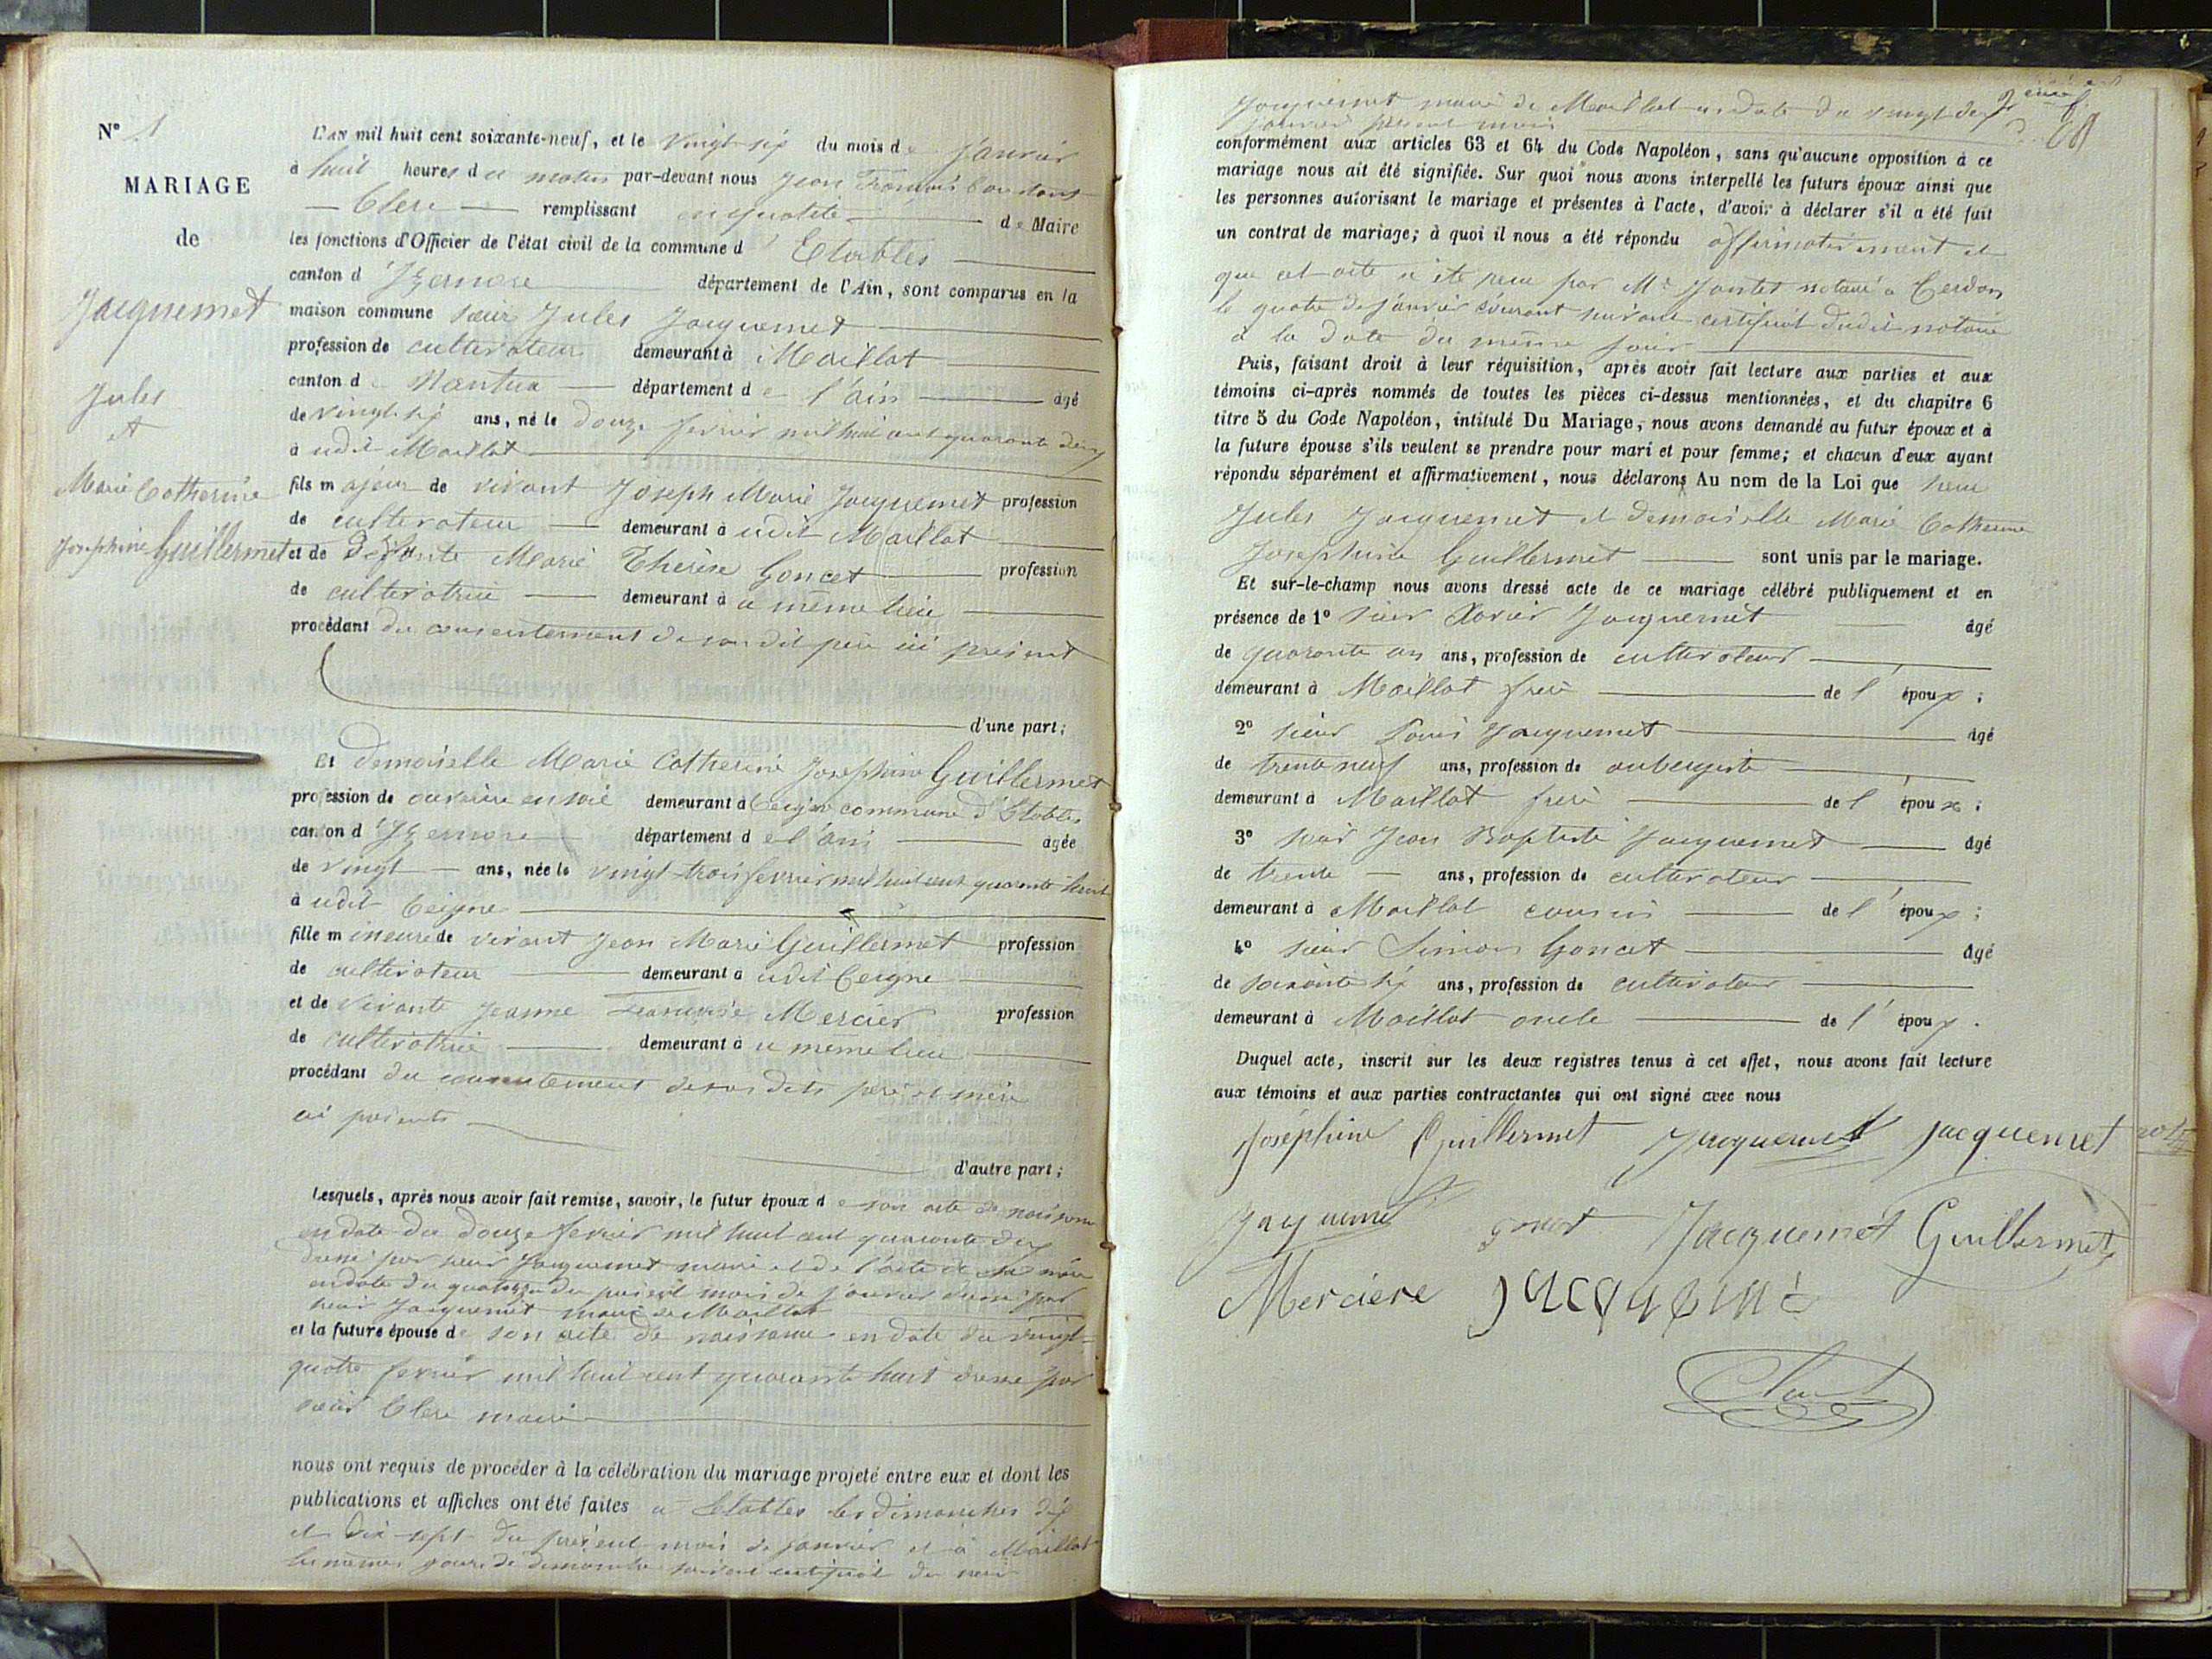 N° 1
MARIAGE
de
Jacquemet
Jules
et
Marie Catherine
Josephine Guillermet
L'an mil huit cent soixante-neuf, et le vingt-six du mois de Janvier
à huit heures du matin par-devant nous Jean François
Clerc remplissant en qualité de Maire
les fonctions d'Officier de l'état civil de la commune d' Etables
canton d'Izernore département de l'Ain, sont comparus en la
maison commune sieur Jules Jacquemet
profession de cultivateur demeurant à Maillat
canton de Nantua département de l'ain âgé
de vingt-six ans, né le douze fevrier mil huit cent quarante deux
à udit Maillat
fils majeur de vivant Joseph Marie Jacquemet profession
de cultivateur demeurant à udit Maillat
et de defunte Marie Thérèse Goncet profession
de cultivatrice demeurant à ce même lieu
procédant du consentement de son dit père ici présent
d'une part;
Et demoiselle Marie Catherine Josephine Guillermet
profession de ouvrière en soie demeurant à Ceigne commune d'Etables
canton d'Izernore département de l'ain agée
de vingt ans, née le vingt-trois fevrier mil huit cent quarante huit
à udit Ceigne
fille mineure de vivant Jean Marie Guillermet profession
de cultivateur demeurant à udit Ceigne
et de vivante Jeanne Françoise Mercier profession
de cultivatrice demeurant à ce même lieu
procédant du consentement de ses dits père et mère
ici présents
d'autre part;
Lesquels, après nous avoir fait remise, savoir, le futur époux de son acte de naissance
en date du douze fevrier mil huit cent quarante deux
dressé par sieur Jacquemet maire et de l'acte de sa mère
en date du quatorze du présent mois de Janvier dressé par
sieur Jacquemet maire de Maillat
et la future épouse de son acte de naissance en date du vingt-
quatre fevrier mil huit cent quarante huit dressé par
sieur Clerc maire
nous ont requis de procéder à la célébration du mariage projeté entre eux et dont les
publications et affiches ont été faites a Etables les dimanches dix
et dix-sept du présent mois de janvier et à Maillat
les mêmes jours de dimanche suivant certificat du sieur
Jacquemet maire de Maillat en date du vingt deux
janvier présent mois
conformément aux articles 63 et 64 du Code Napoléon, sans qu'aucune opposition à ce
mariage nous ait été signifiée. Sur quoi nous avons interpellé les futurs époux ainsi que
les personnes autorisant le mariage et présentes à l'acte, d'avoir à déclarer s'il a été fait
un contrat de mariage; à quoi il nous a été répondu affirmativement et
que cet acte a été reçu par Me Jantet notaire à Cerdon
le quatre de janvier courant suivant certificat dudit notaire
à la date du même jour
Puis, faisant droit à leur réquisition, après avoir fait lecture aux parties et aux
témoins ci-après nommés de toutes les pièces ci-dessus mentionnées, et du chapitre 6
titre 5 du Code Napoléon, intitulé Du Mariage, nous avons demandé au futur époux et à
la future épouse s'ils veulent se prendre pour mari et pour femme; et chacun d'eux ayant
répondu séparément et affirmativement, nous déclarons Au nom de la Loi que sieur
Jules Jacquemet et demoiselle Marie Catherine
Josephine Guillermet sont unis par le mariage.
Et sur-le-champ nous avons dressé acte de ce mariage célébré publiquement et en
présence de 1° sieur Xavier Jacquemet âgé
de quarante un ans, profession de cultivateur
demeurant à Maillat frère de l'époux;
2° sieur Louis Jacquemet âgé
de trente neuf ans, profession de aubergiste
demeurant à Maillat frère de l'époux;
3° sieur Jean Baptiste Jacquemet âgé
de trente ans, profession de cultivateur
demeurant à Maillat cousin de l'époux;
4° sieur Simon Goncet âgé
de soixante six ans, profession de cultivateur
demeurant à Maillat oncle de l'époux.
Duquel acte, inscrit sur les deux registres tenus à cet effet, nous avons fait lecture
aux témoins et aux parties contractantes qui ont signé avec nous
Joséphine Guillermet Jacquemet Jacquemet
Jacquemet Jacquemet Guillermet
Merciere
Clerc